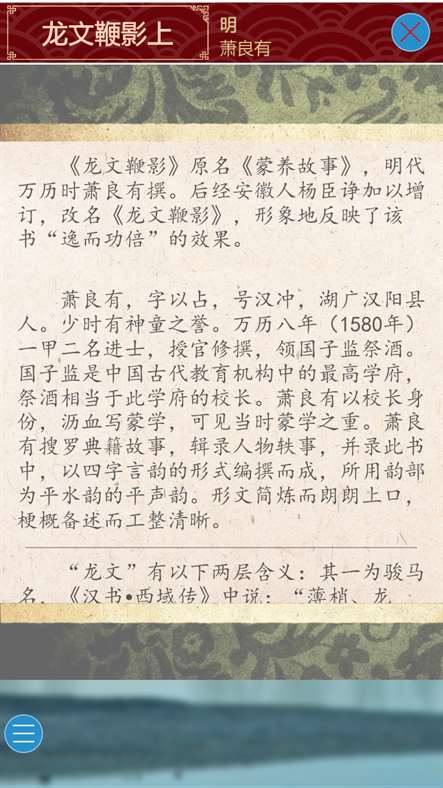 龙文鞭影上
明
萧良有
《龙文鞭影》原名《蒙养故事》，明代
万历时萧良有撰。后经安徽人杨臣诤加以增
订，改名《龙文鞭影》，形象地反映了该
书“逸而功倍”的效果。
萧良有，字以占，号汉冲，湖广汉阳县
人。少时有神童之誉。万历八年（1580年）
一甲二名进士，授官修撰，领国子监祭酒。
国子监是中国古代教育机构中的最高学府，
祭酒相当于此学府的校长。萧良有以校长身
份，沥血写蒙学，可见当时蒙学之重。萧良
有搜罗典籍故事，辑录人物轶事，并录此书
中，以四字言韵的形式编撰而成，所用韵部
为平水韵的平声韵。形文简炼而朗朗上口，
梗概备述而工整清晰。
“龙文”有以下两层含义：其一为骏马
名，《汉书•西域传》中说：“薄梢、龙